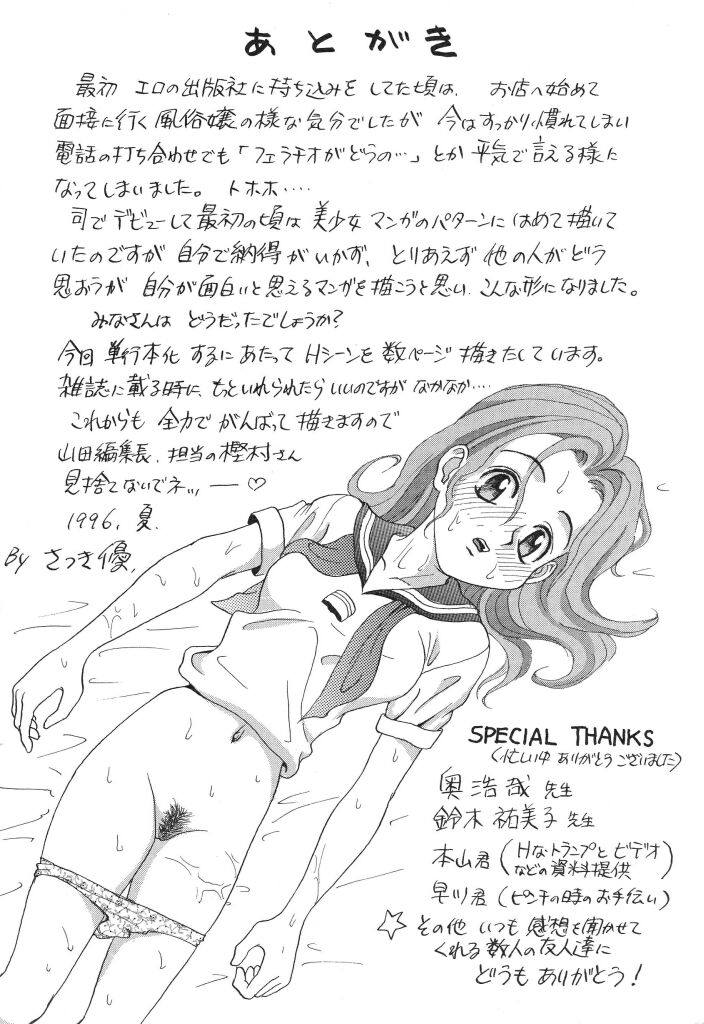 あとがき
最初 エロの出版社に持ち込みをしてた頃は、お店へ始めて
面接に行く風俗嬢の様な気分でしたが 今はすっかり慣れてしまい
電話の打ち合わせでも「フェラチオがどうの…」とか平気で言える様に
なってしまいました。トホホ‥‥
司でデビューして最初の頃は美少女マンガのパターンにはめて描いて
いたのですが 自分で納得がいかず、とりあえず他の人がどう
思おうが 自分が面白いと思えるマンガを描こうと思い、こんな形になりました。
みなさんは どうだったでしょうか?
今回 単行本化するにあたって Hシーンを数ページ描きたしています。
雑誌に載る時に、もっといれられたらいいのですが なかなか‥‥
これからも 全力でがんばって描きますので
山田編集長、担当の樫村さん
見捨てないでネッ、ー♡
1996、夏、
By さつき優、
SPECIAL THANKS
(忙しい中 ありがとうございました)
奥浩哉 先生
鈴木祐美子 先生
本山君(Hなトランプとビデオ
などの資料提供)
早川君(ピンチの時のお手伝い)
☆その他 いつも 感想を聞かせて
くれる数人の友人達に
どうもありがとう!